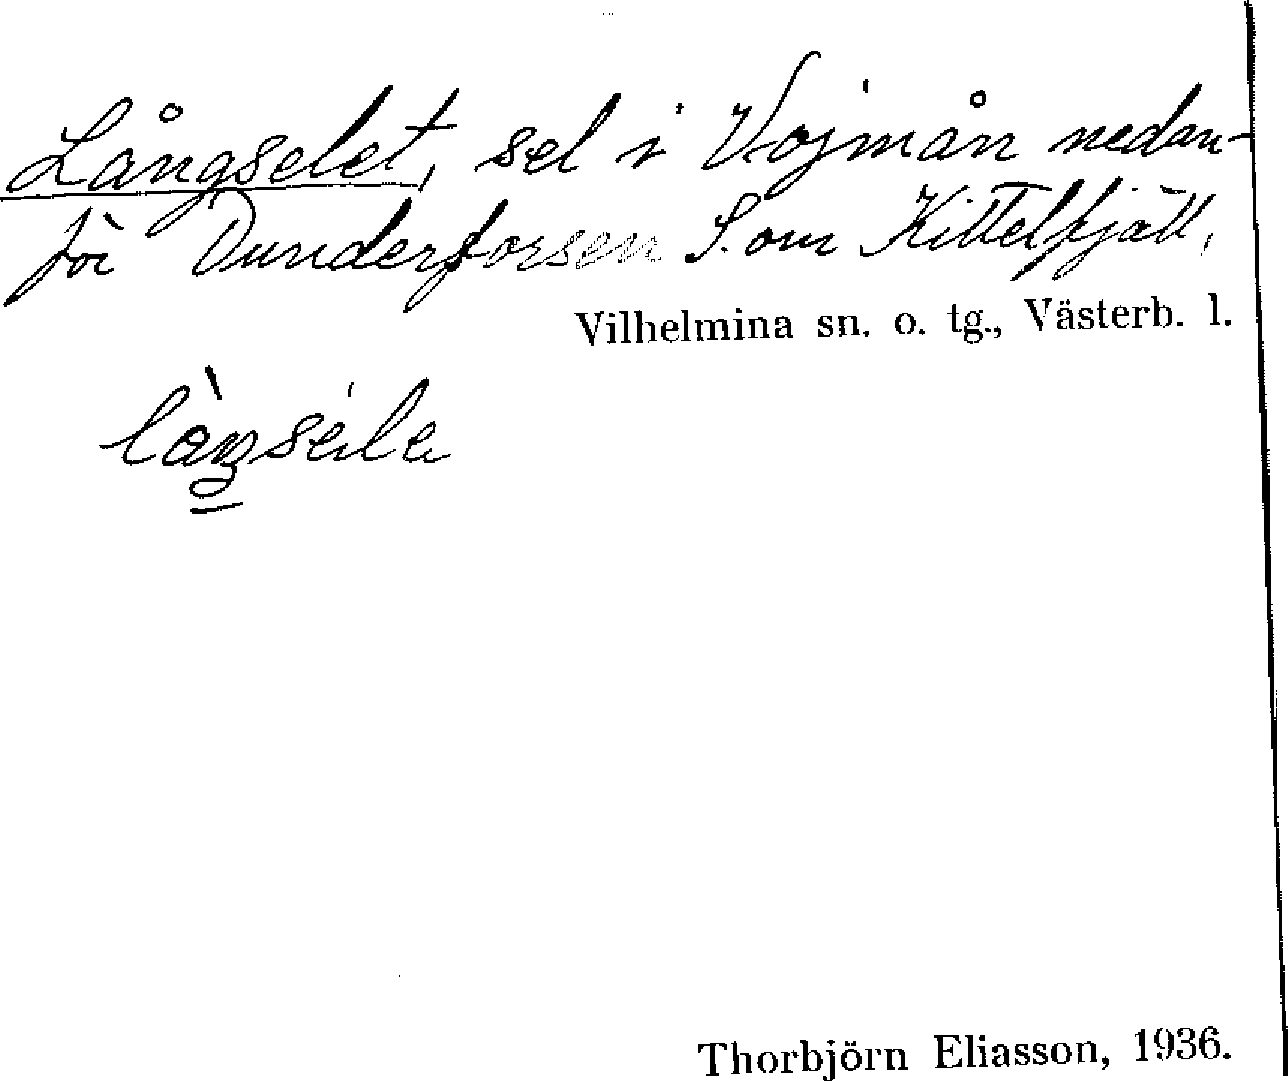 Långselet, sel i Vojmån nedan-
för Dunderforsen S. om Kittelfjäll,
Vilhelmina sn. o. tg., Västerb. l.
Thorbjörn Eliasson, 1936.